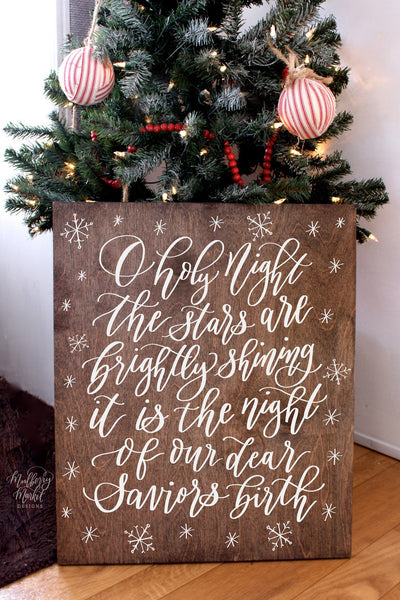 O holy Night
the stars are
brightly shining
it is the night
of our dear
Saviors birth
Mulberry
Market
DESIGNS